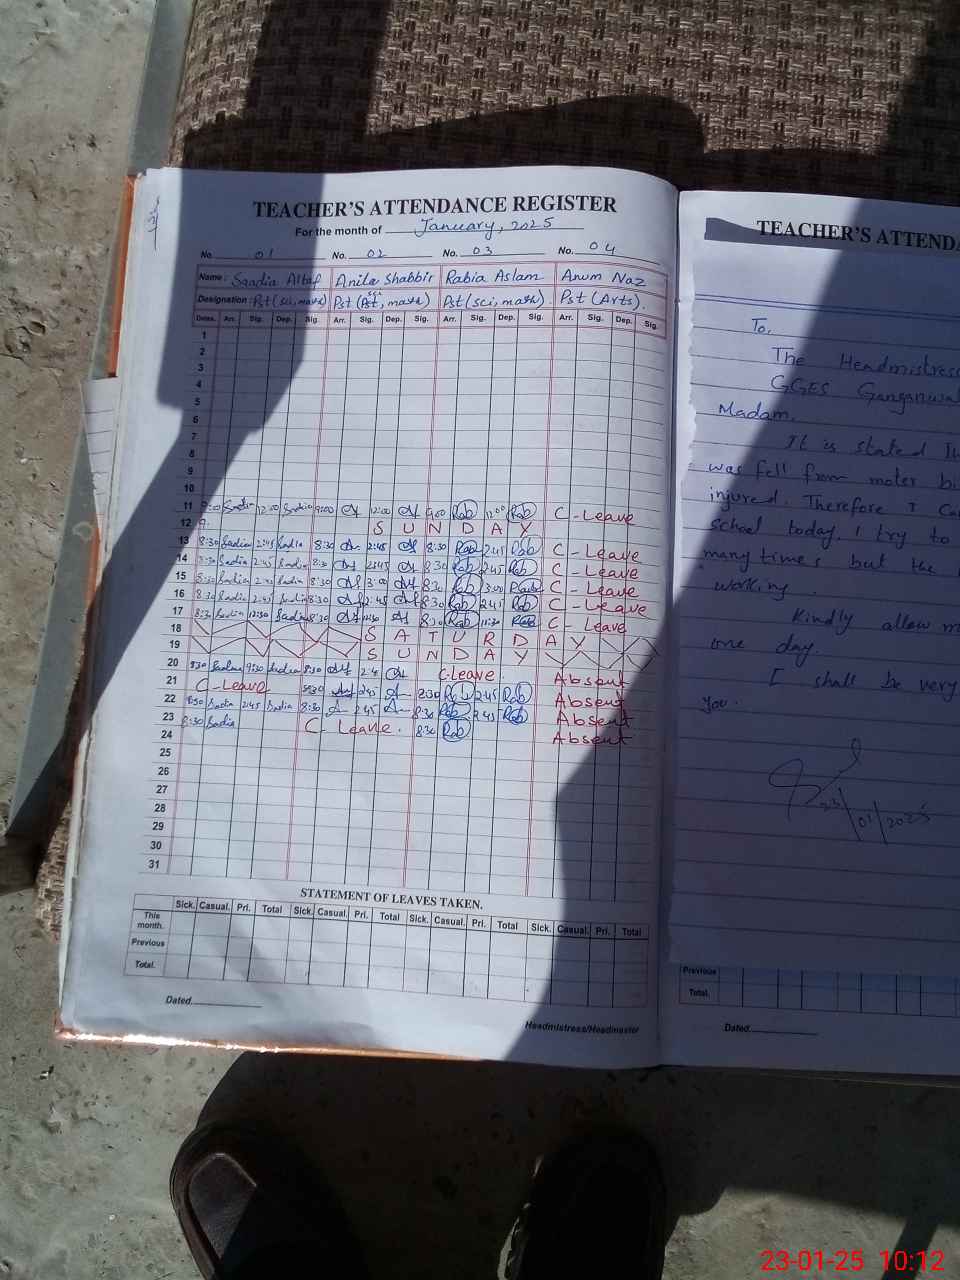 TEACHER'S ATTENDANCE REGISTER
For the month of January, 2025
No. 01 No. 02 No. 03 No. 04
Name: Saadia Altaf Anila Shabbir Rabia Aslam Anum Naz
Designation: Pst (sci, math) Pst (sci, math) Pst (sci, math). Pst (Arts).
Dates. Arr. Sig. Dep. Sig. Arr. Sig. Dep. Sig. Arr. Sig. Dep. Sig. Arr. Sig. Dep. Sig.
1
2
3
4
5
6
7
8
9
10
11 9:00 Sadia 12:00 Sadia 9:00 12:00 9:00 Rab 12:00 Rab C-Leave
12 9. S U N D A Y
13 8:30 Sadia 2:45 Sadia 8:30 2:45 8:30 Rab 2:45 Rab C-Leave
14 8:30 Sadia 2:45 Sadia 8:30 2:45 8:30 Rab 2:45 Rab C-Leave
15 8:30 Sadia 2:45 Sadia 8:30 3:00 8:30 Rab 3:00 Rab C-Leave
16 8:30 Sadia 2:45 Sadia 8:30 2:45 8:30 Rab 2:45 Rab C-Leave
17 8:30 Sadia 12:30 Sadia 8:30 8:30 Rab Rab C-Leave
18 S A T U R D A Y
19 S U N D A Y
20 8:30 Sadia 9:30 Sadia 8:30 C-Leave. Absent
21 C-Leave 8:30 2:45 8:30 Rab 2:45 Rab Absent
22 8:30 Sadia 2:45 Sadia 8:30 2:45 8:30 Rab 2:45 Rab Absent
23 8:30 Sadia C Leave. 8:30 Rab Absent
24
25
26
27
28
29
30
31
STATEMENT OF LEAVES TAKEN.
Sick. Casual. Pri. Total Sick. Casual. Pri. Total Sick. Casual. Pri. Total Sick. Casual. Pri. Total
This month.
Previous
Total.
Dated
Headmistress/Headmaster
TEACHER'S ATTENDA
To,
The Headmistress
GGES
Madam,
It is stated
was fell from moter bi
injured. Therefore I
school today. I try to
many times but the
working.
Kindly allow m
one day.
I shall be very
you.
23/01/2025
Previous
Total.
Dated
23-01-25 10:12